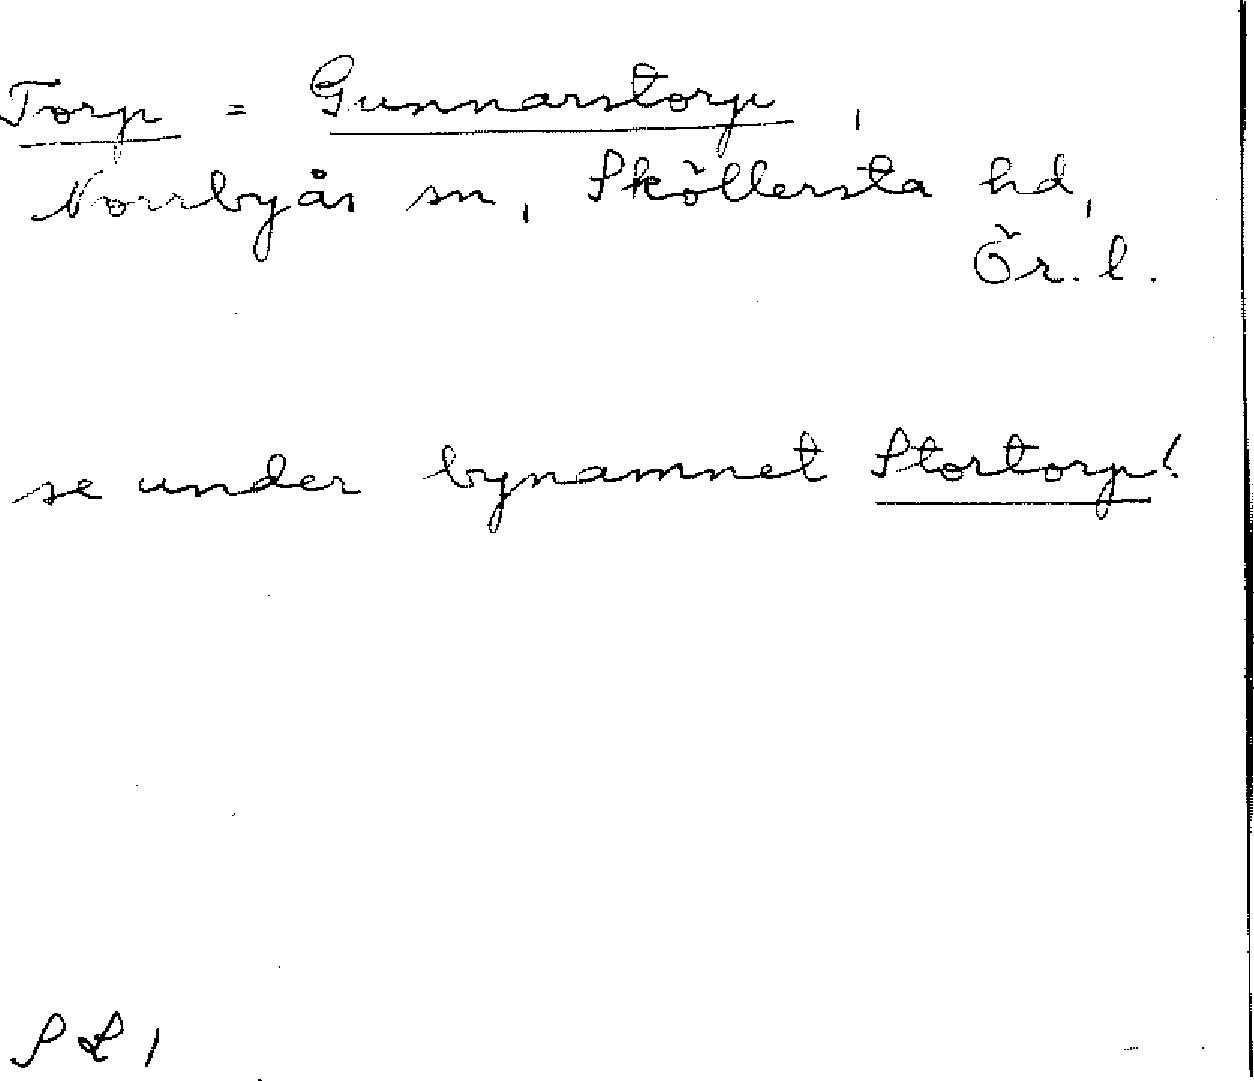 Torp = Gunnarstorp,
Norrbyås sn, Sköllersta hd,
Ör. l.
se under bynamnet Stortorp!